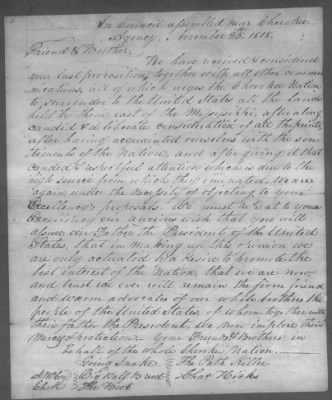 In Council assembled near Cherokee
Agency, November 28, 1818.
Friend & Brother,
We have received & considered
your last proposition, together with all other commu-
nications, all of which urges the Cherokee Nation
to surrender to the United States all the lands
held by them east of the Mississippi, after a long
candid & deliberate consideration of all the points
after having acquainted ourselves with the sen-
timents of the Nation, and after giving it that
candid & respectful attention which is due to the
high source from which they eminated, we are
again under the necessity of objecting to your
Excellency's proposals. We must repeat to your
Excellency our anxious wish that you will
assure our Father the President of the United
States, that in making up this opinion we
are only actuated by a desire to promote the
best interest of the Nation, that we are now
and trust we ever will remain the firm friend
and warm advocates of our white brothers the
people of the United States, of whom together with
their father the President, We now implore their
Mercy & protection. Your Friends & Brothers in
behalf of the whole Cherokee Nation.
Going Snake The Path Killer
Big Half Breed Chas Hicks
Clerk The Boot